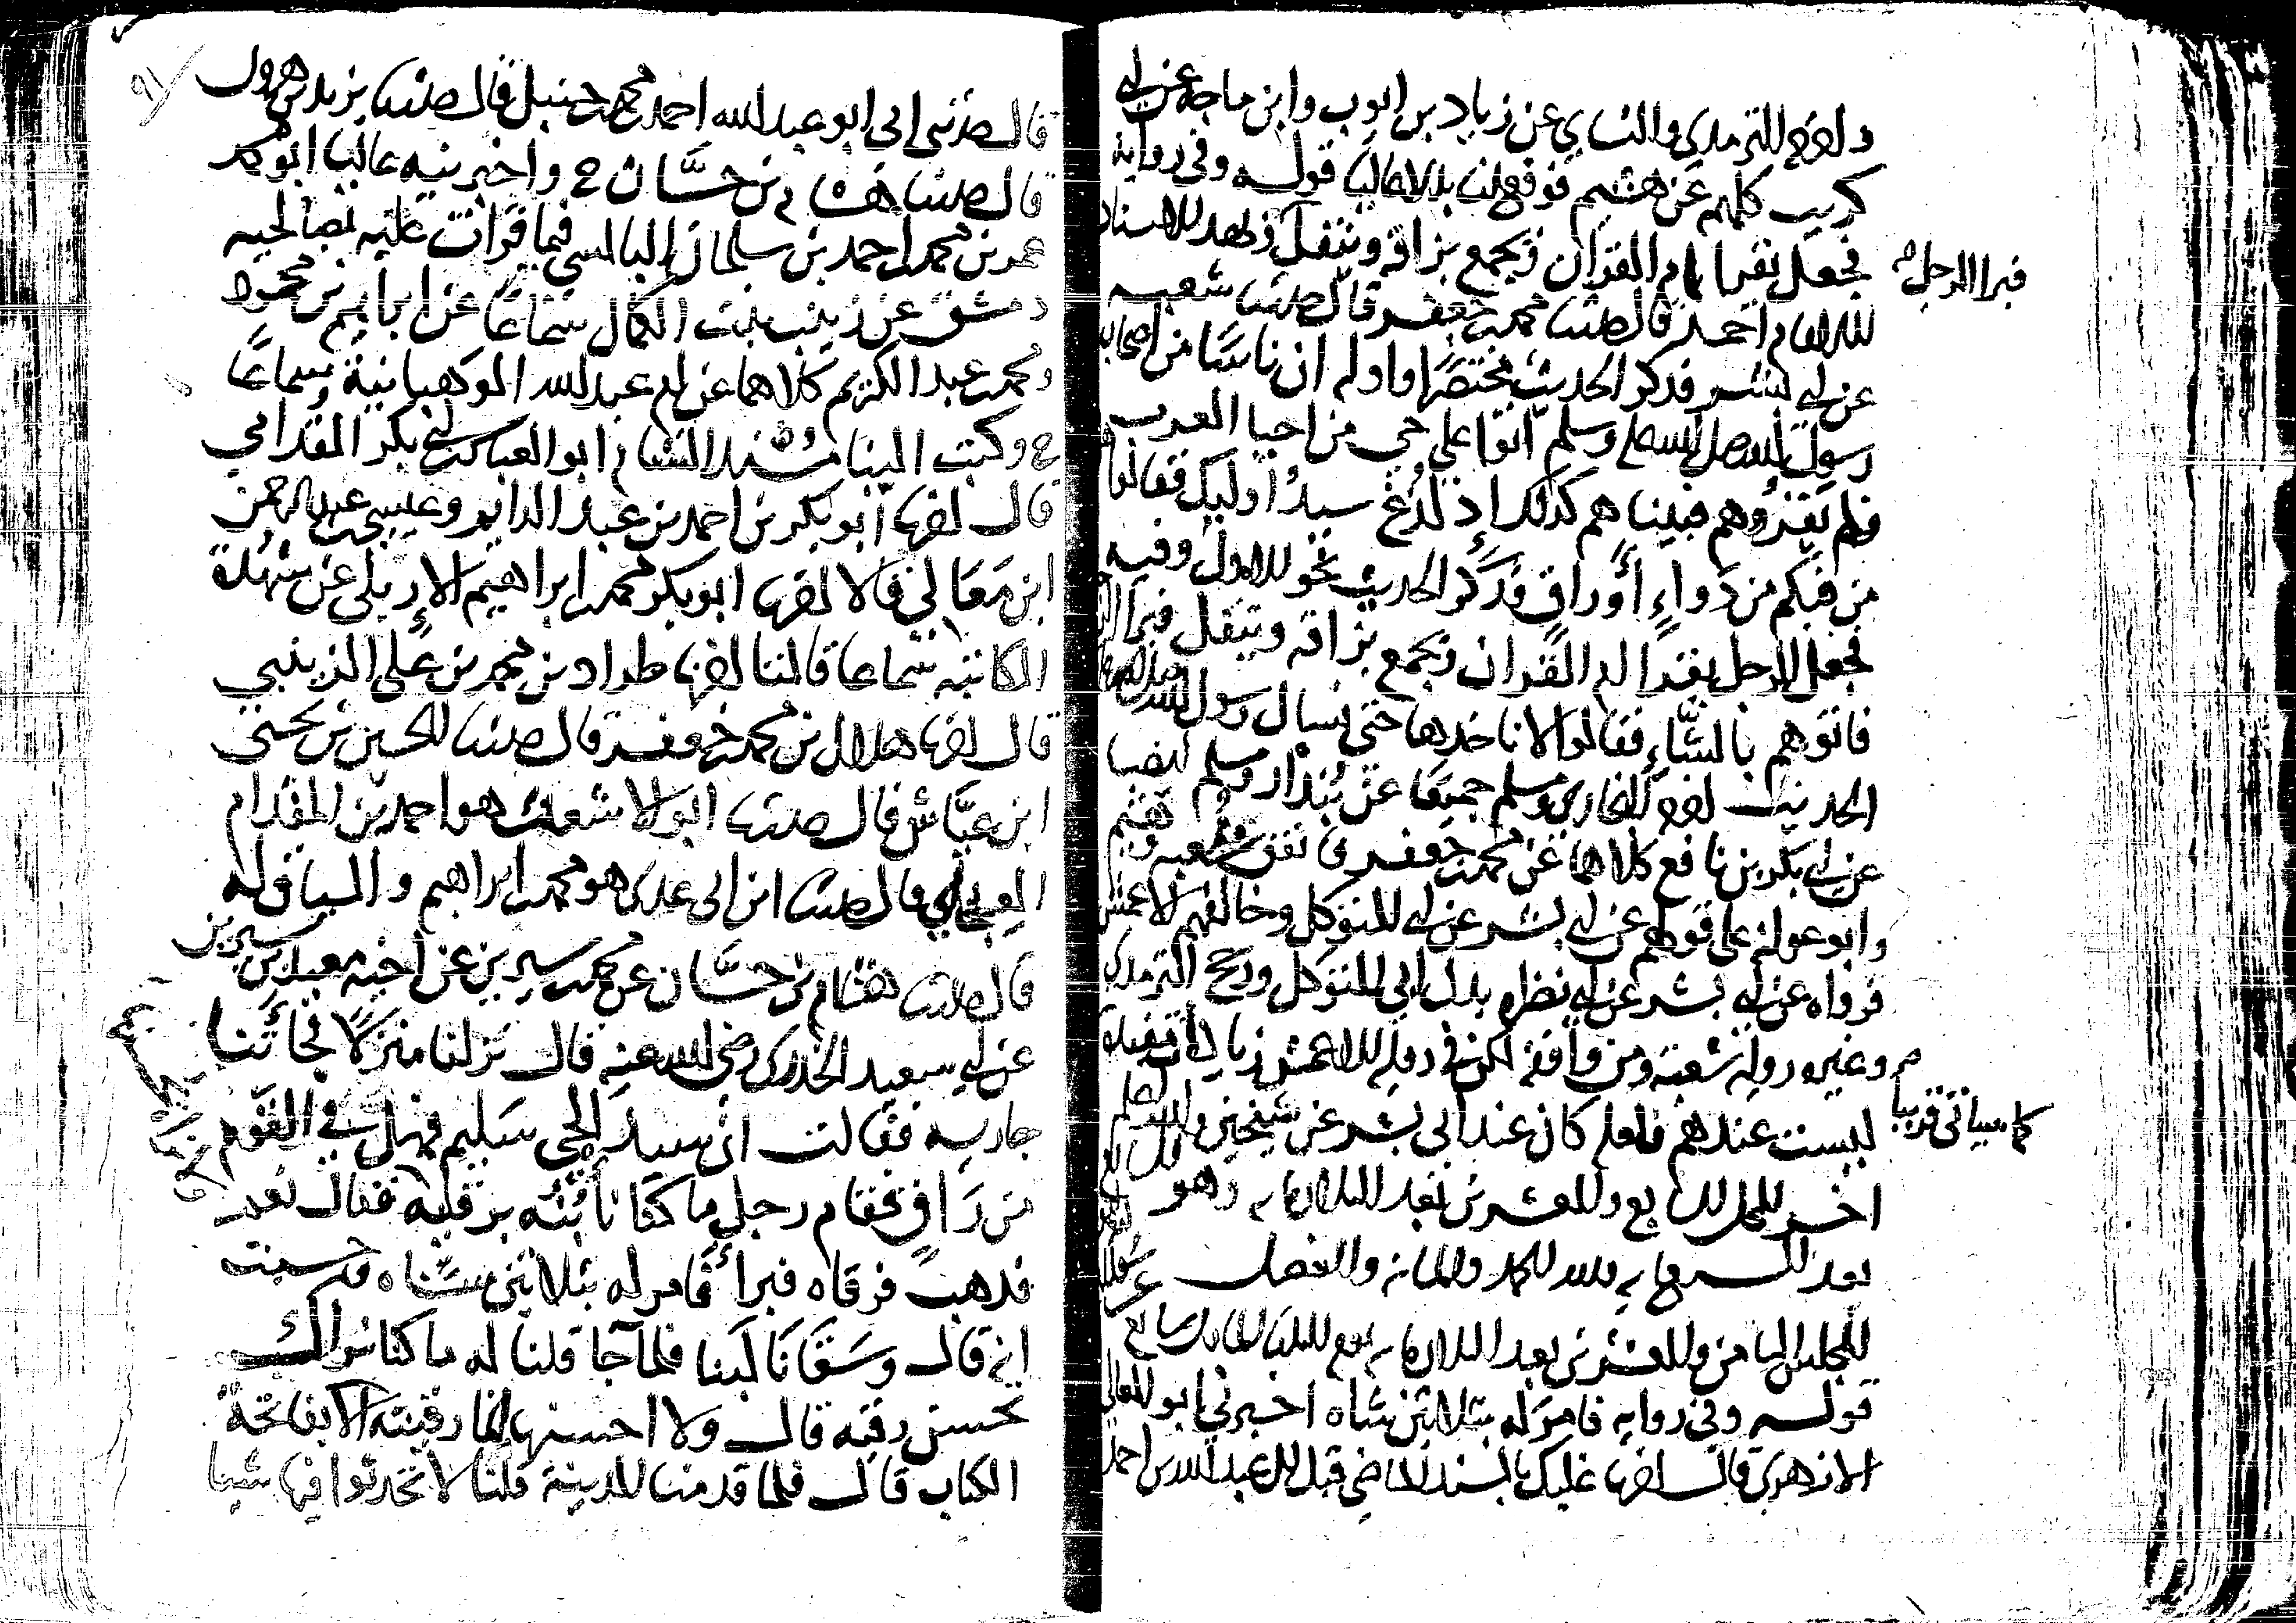 واخرجه الترمذي والنساي عن زياد بن ايوب وابن ماجه عن ابي
كريب كلهم عن هشيم فوقع لنا بدلا عاليا قوله وفي رواية
فجعل يقرا بام القران ويجمع بزاقه ويتفل وبهذا الاسناد
الى الامام احمد قال حدثنا محمد بن جعفر قال حدثنا شعبه
فبرا الرجل
عن ابي بشر فذكر الحديث مختصرا واوله ان ناسا من اصحاب
رسول الله صلى الله عليه وسلم اتوا على حي من احيا العرب
فلم يقروهم فبينا هم كذلك إذ لُدغ سيد اوليك فقالوا
من فيكم من دواءٍ أو راقٍ فذكر الحديث نحو الاول وفيه
فجعل الرجل يقرا ام القران ويجمع بزاقه ويتفل فبرا الرجل
فاتوهم بالشَّاءِ فقالوا لا ناخذها حتى نسال رسول الله صلى الله عليه
الحديث اخرجه البخاري ومسلم جميعا عن بُندار ومسلم ايضا
عن ابي بكر بن نافع كلاهما عن محمد بن جعفر اتفق شعبه وهشيم
وابو عوانة على قولهم عن ابي بشر عن ابي المتوكل وخالفهم الاعمش
فرواه عن ابي بشر عن ابي نضرة بدل ابي المتوكل ورجح الترمذي
وغيره رواية شعبة ومن وافقه لكن في رواية الاعمش زيادات مفيدة
ليست عندهم فلعله كان عند ابي بشر عن شيخين والله اعلم
كما سياتي قريبا
اخر المجلس السابع والعشرين بعد الثلاثمايه وهو
بعد الستمايه ولله الحمد والمنة والفضل
المجلس الثامن والعشرين بعد الثلاثمايه
قوله وفي رواية فامر له بثلاثين شاه اخبرني ابو المعالي
الازهري قال اخبرنا عليك بالسند الماضي قبل الى عبد الله بن احمد
قال حدثني ابي ابو عبد الله احمد بن محمد بن حنبل قال حدثنا يزيد بن هرون
قال حدثنا هشام بن حسَّان ح واخبرنيه عاليا ابو محمد
عمر بن محمد بن احمد بن سلمان البالسي فيما قرات عليه بصالحية
دمشق عن زينب بنت الكمال سماعا عن ابراهيم بن محمود
ومحمد بن عبد الكريم كلاهما عن ام عبد الله الوهبانية سماعًا
ح وكتب الينا مسند الشام ابو العباس بن ابي بكر المقدسي
قال اخبرنا ابو بكر بن احمد بن عبد الدايم وعيسى بن عبد الرحمن
ابن معالي قالا اخبرنا ابو بكر محمد بن ابراهيم الإربلي عن شهدة
الكاتبه سماعا قالت انا اخبرنا طراد بن محمد بن علي الزينبي
قال اخبرنا هلال بن محمد بن جعفر قال حدثنا الحسين بن يحيى
ابن عيَّاش قال حدثنا ابو الاشعث هو احمد بن المقدام
العجلي قال حدثنا ابن ابي عدي هو محمد بن ابراهيم والسياق له
قال حدثنا هشام بن حسَّان عن محمد بن سيرين عن اخيه معبد بن سيرين
عن ابي سعيد الخدري رضي الله عنه قال نزلنا منزلًا فجاءَتنا
جاريه فقالت ان سيد الحي سليم فهل في القوم
من رَاقٍ فقام رجل ما كنا نأبُنُه برقيه فقال نعم
فذهب فرقاه فبرأ فأمر له بثلاثين شاه وحسبت
انه قال وسَقَانا لَبنا فلما جا قلنا له ما كنا نراك
تحسن رقيه قال ولا احسنها انما رقيته بفاتحة
الكتاب قال فلما قدمنا المدينة قلنا لا تحدثوا فيها شيئا